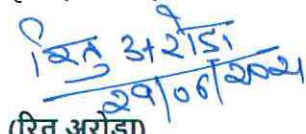 रितु अरोड़ा
29/06/2021
(रितु अरोड़ा)